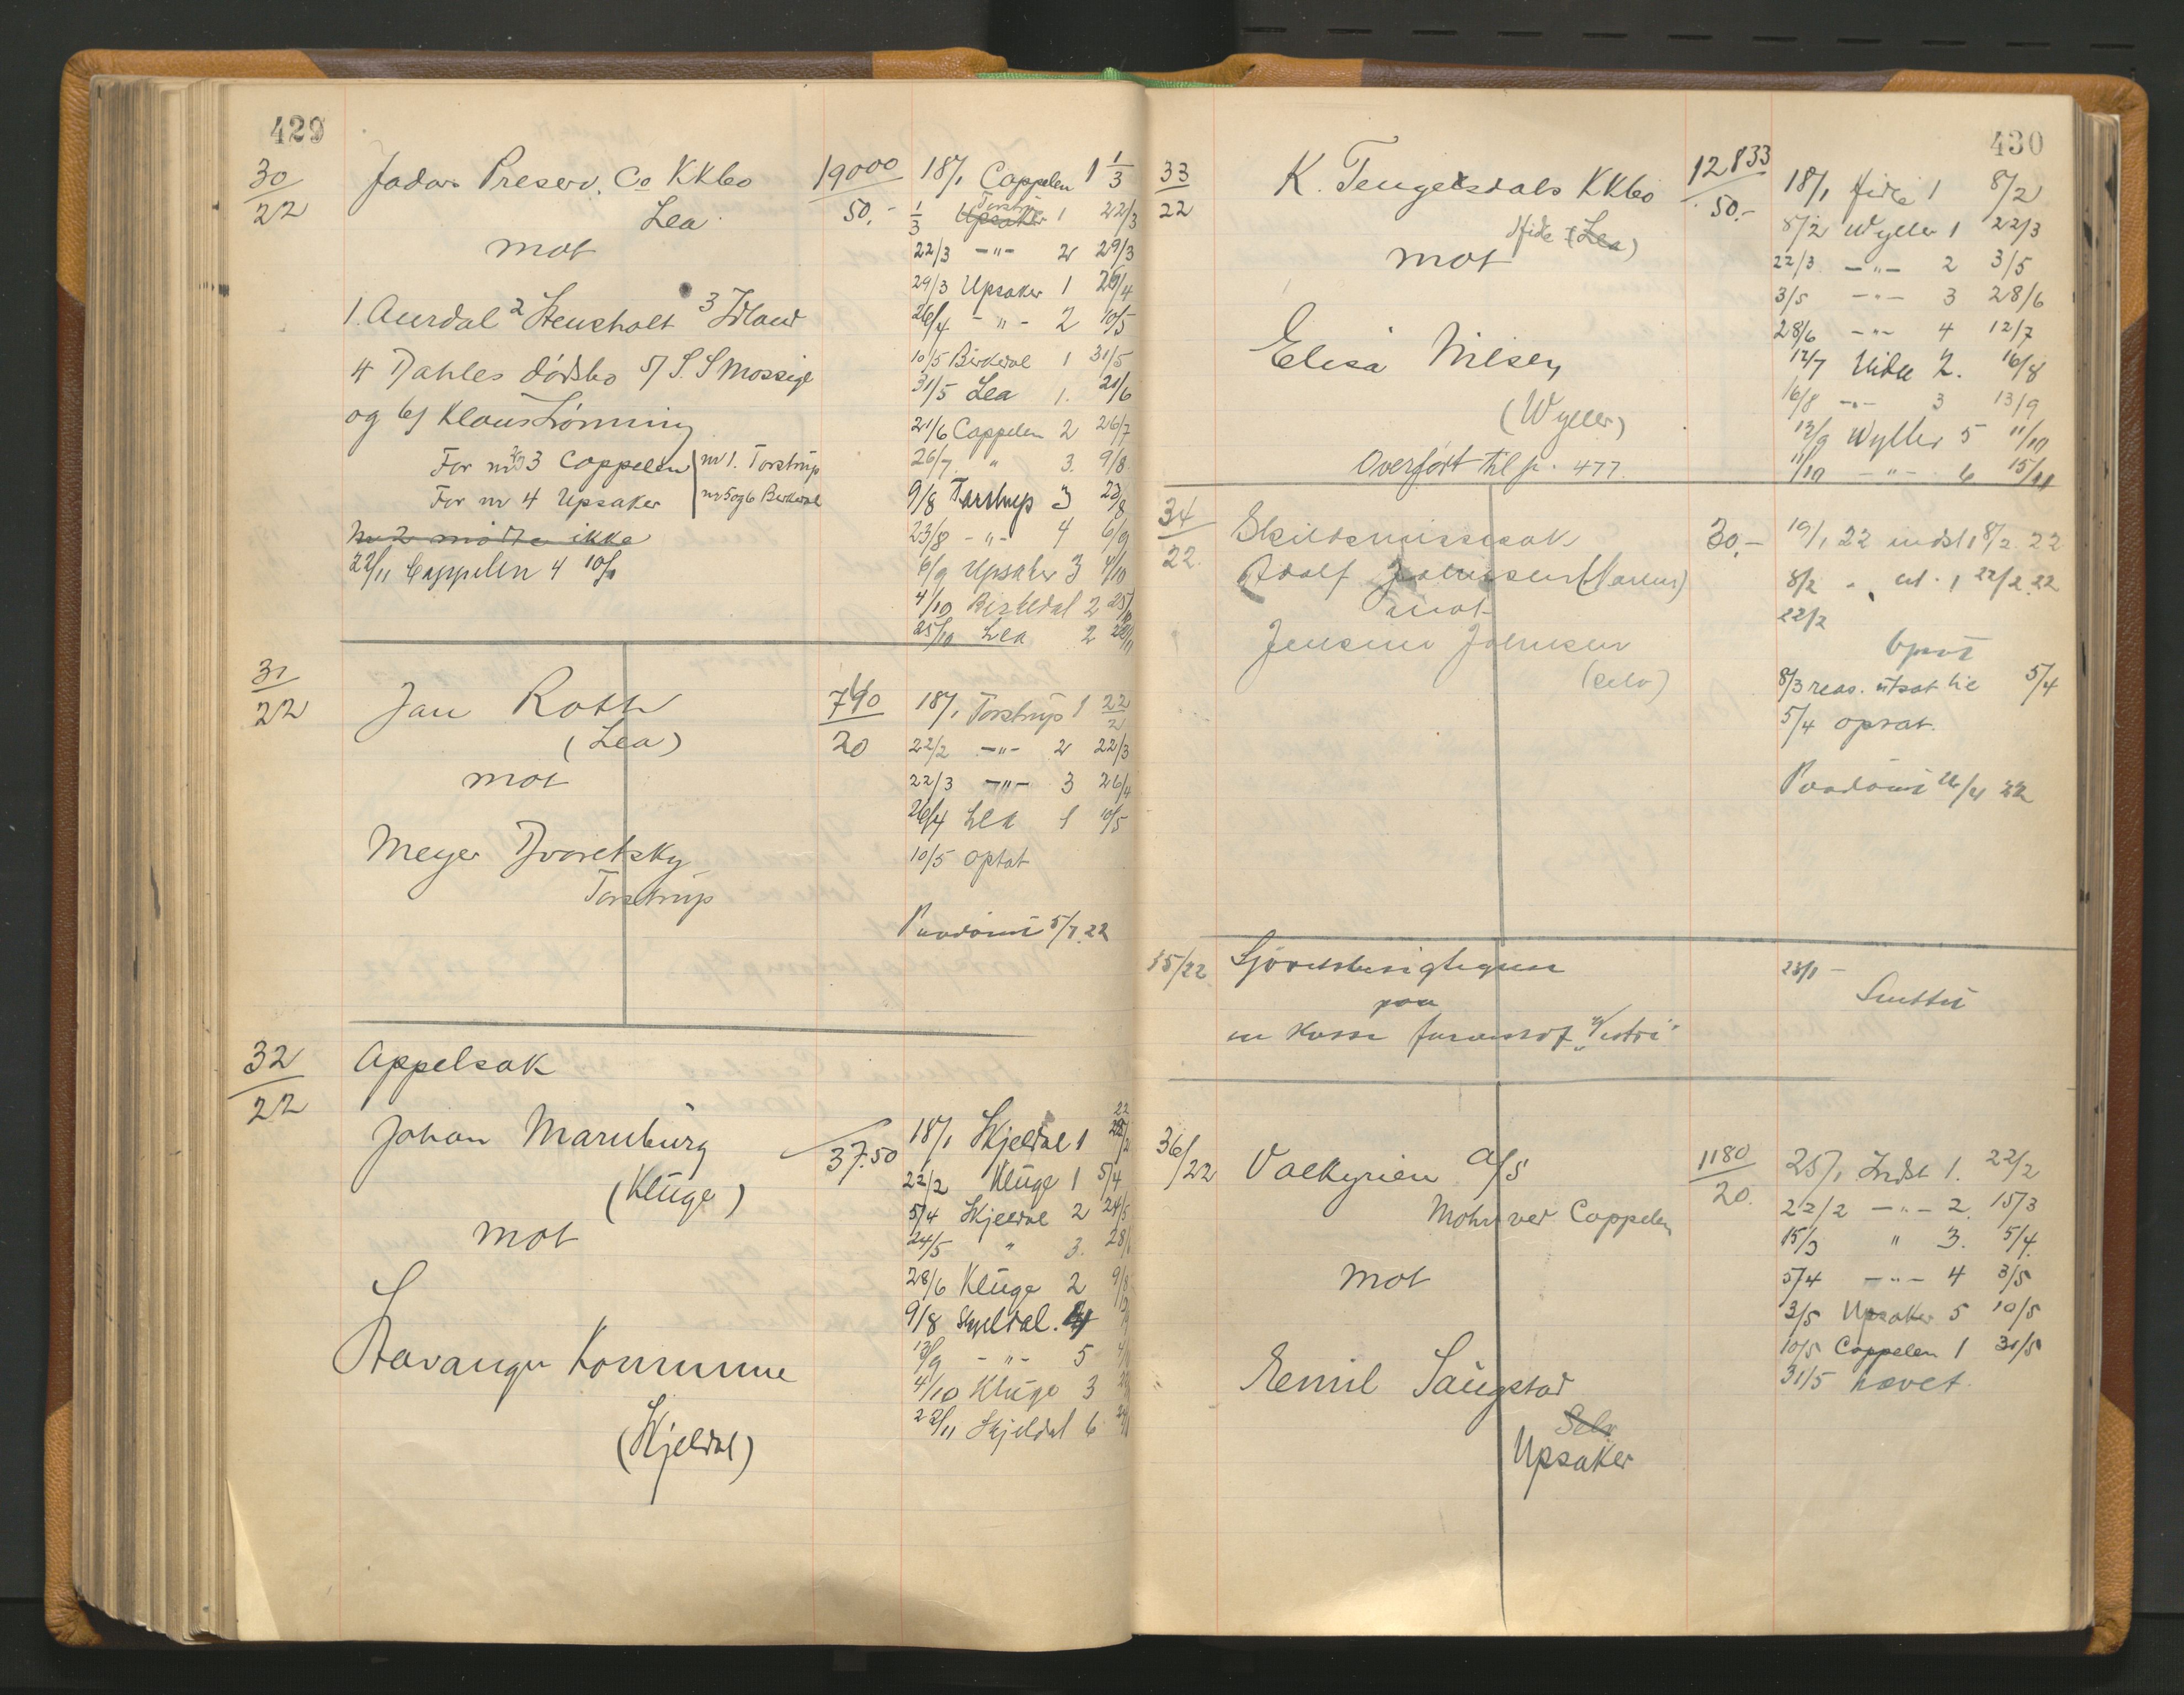 429
30/22
Jadar Preserv. Co KKbo
Lea
mot
1. Aurdal 2 Stensholt 3
4 Dahles dødsbo 5/ S. S Mossige
og 6/ Klaus Lønning
For nr 2 og 3 Cappelen nr 1. Torstrup
For nr 4 Upsaker nr 5 og 6 Birkedal
Nr 2 mødte ikke
22/11 Cappelen 4
19000
50.-
18/1 Cappelen 1 1/3
1/3 Upsaker Torstrup 1 22/3
22/3 -"- 2 29/3
29/3 Upsaker 1 26/4
26/4 -"- 2 10/5
10/5 Birkedal 1 31/5
31/5 Lea 1. 21/6
21/6 Cappelen 2 26/7
26/7 " 3. 9/8
9/8 Torstrup 3 23/8
23/8 -"- 4 6/9
6/9 Upsaker 3 4/10
4/10 Birkedal 2 25/10
25/10 Lea 2 22/11
31/22
Jan Roth
(Lea)
mot
Meyer Dvoretsky
Torstrup
790
20
18/1 Torstrup 1 22/2
22/2 -"- 2 22/3
22/3 -"- 3 26/4
26/4 Lea 1 10/5
10/5 optat
Paadømt 5/7.22
32/22
Appelsak
Johan Marnburg
(Kluge)
mot
Stavanger Kommune
(Skjeldal)
37.50
18/1 Skjeldal 1 22/2
22/2 Kluge 1 5/4
5/4 Skjeldal 2 24/5
24/5 " 3. 28/6
28/6 Kluge 2 9/8
9/8 Skjeldal. 4
13/9 -"- 5
4/10 Kluge 3
22/11 Skjeldal 6
430
33/22
K. Tengesdals KKbo
Hide (Lea)
mot
Elisa Nilsen
(Wyller)
Overført til p. 477.
12833
50.-
18/1 Hide 1 8/2
8/2 Wyller 1 22/3
22/3 -"- 2 3/5
3/5 -"- 3 28/6
28/6 -"- 4 12/7
12/7 Hide 2. 16/8
16/8 -"- 3 13/9
13/9 Wyller 5 11/10
11/10 -"- 6 15/11
34/22.
Skilsmissesak
Adolf Johnsen
mot
Jensine Johnsen
(selv)
30.-
19/1 22 indst 1 8/2 22
8/2 " 1 22/2.22
22/2
Opsat
8/3 reas. utsat til 5/4
5/4 opsat.
Paadømt 22
35/22
Sjøretsbesigtigelse
paa
25/1 -
Sluttet
36/22
Valkyrien A/S
Mohr ved Cappelen
mot
Emil Saugstad
Selv
Upsaker
1180
20.
25/1 Indst 1. 22/2
22/2 -"- 2. 15/3
15/3 " 3. 5/4.
5/4 -"- 4 3/5
3/5 Upsaker 5 10/5
10/5 Cappelen 1 31/5
31/5 hævet.